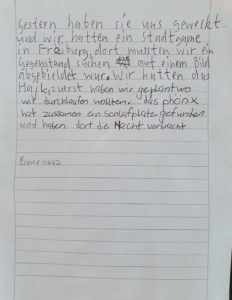 Gestern haben sie uns geweckt
und wir hatten ein Stadtgame
in Freiburg, dort mussten wir ein
Gegenstand suchen auf einem Bild
abgebildet wur. Wir hatten das
Hajk, zuerst haben wir geplant wo
wir durchlaufen wollten. das phönix
hat zusamen ein schlafplatz gefunden
und haben dort die Nacht verbracht